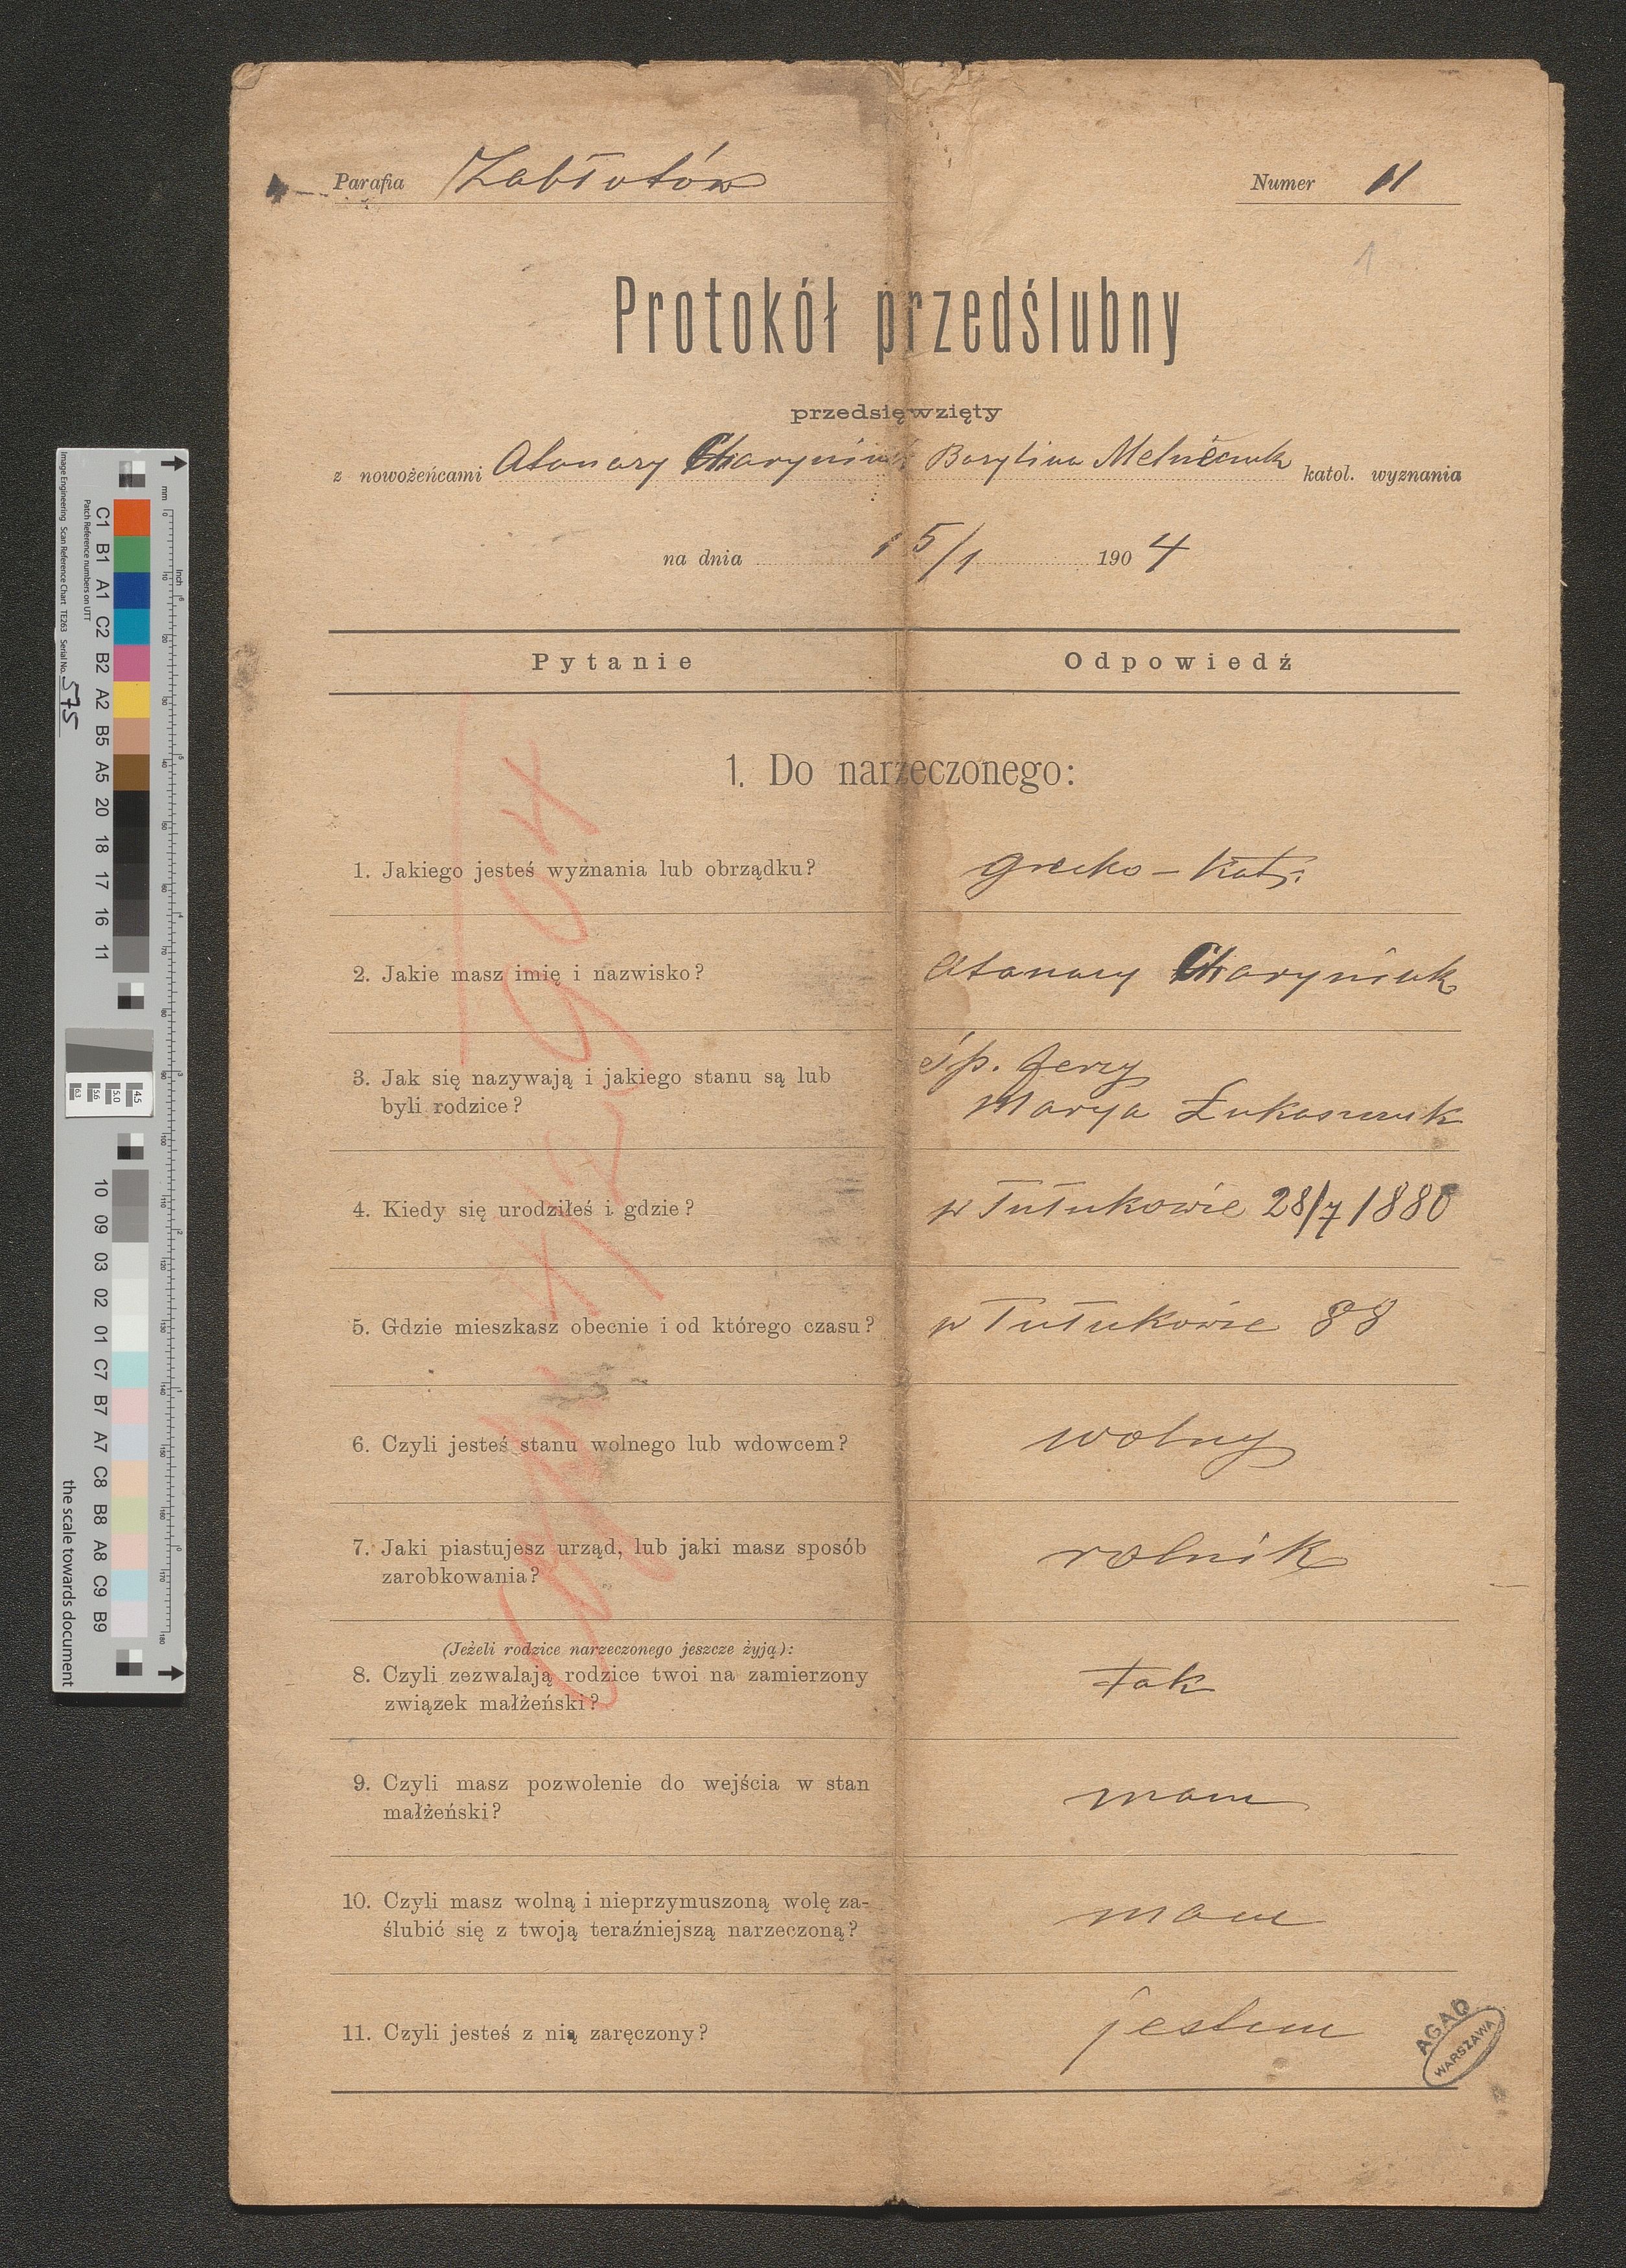 Parafia Zabłotów
Numer 11
1
Protokół przedślubny
przedsięwzięty
z nowożeńcami Atanazy Charyniuk Bazylina Melniczuk katol. wyznania
na dnia 15/1 1904
Pytanie Odpowiedź
1. Do narzeczonego:
1. Jakiego jesteś wyznania lub obrządku? grecko-kat.
2. Jakie masz imię i nazwisko? Atanazy Charyniuk
3. Jak się nazywają i jakiego stanu są lub
byli rodzice?
śp. Jerzy
Marya Łukaszczuk
4. Kiedy się urodziłeś i gdzie? w Tułukowie 28/7 1880
5. Gdzie mieszkasz obecnie i od którego czasu? w Tułukowie 88
6. Czyli jesteś stanu wolnego lub wdowcem? wolny
7. Jaki piastujesz urząd, lub jaki masz sposób
zarobkowania?
rolnik
(Jeżeli rodzice narzeczonego jeszcze żyją):
8. Czyli zezwalają rodzice twoi na zamierzony
związek małżeński?
tak
9. Czyli masz pozwolenie do wejścia w stan
małżeński?
mam
10. Czyli masz wolną i nieprzymuszoną wolę za-
ślubić się z twoją teraźniejszą narzeczoną?
mam
11. Czyli jesteś z nią zaręczony? jestem
AGAD
WARSZAWA
Image Engineering Scan Reference Chart TE263 Serial No. 575
Patch Reference numbers on UTT
C1 B1 A1 C2 B2 A2 B5 A5 20 18 17 16 11
10 09 03 02 01 C7 B7 A7 C8 B8 A8 C9 B9
the scale towards document